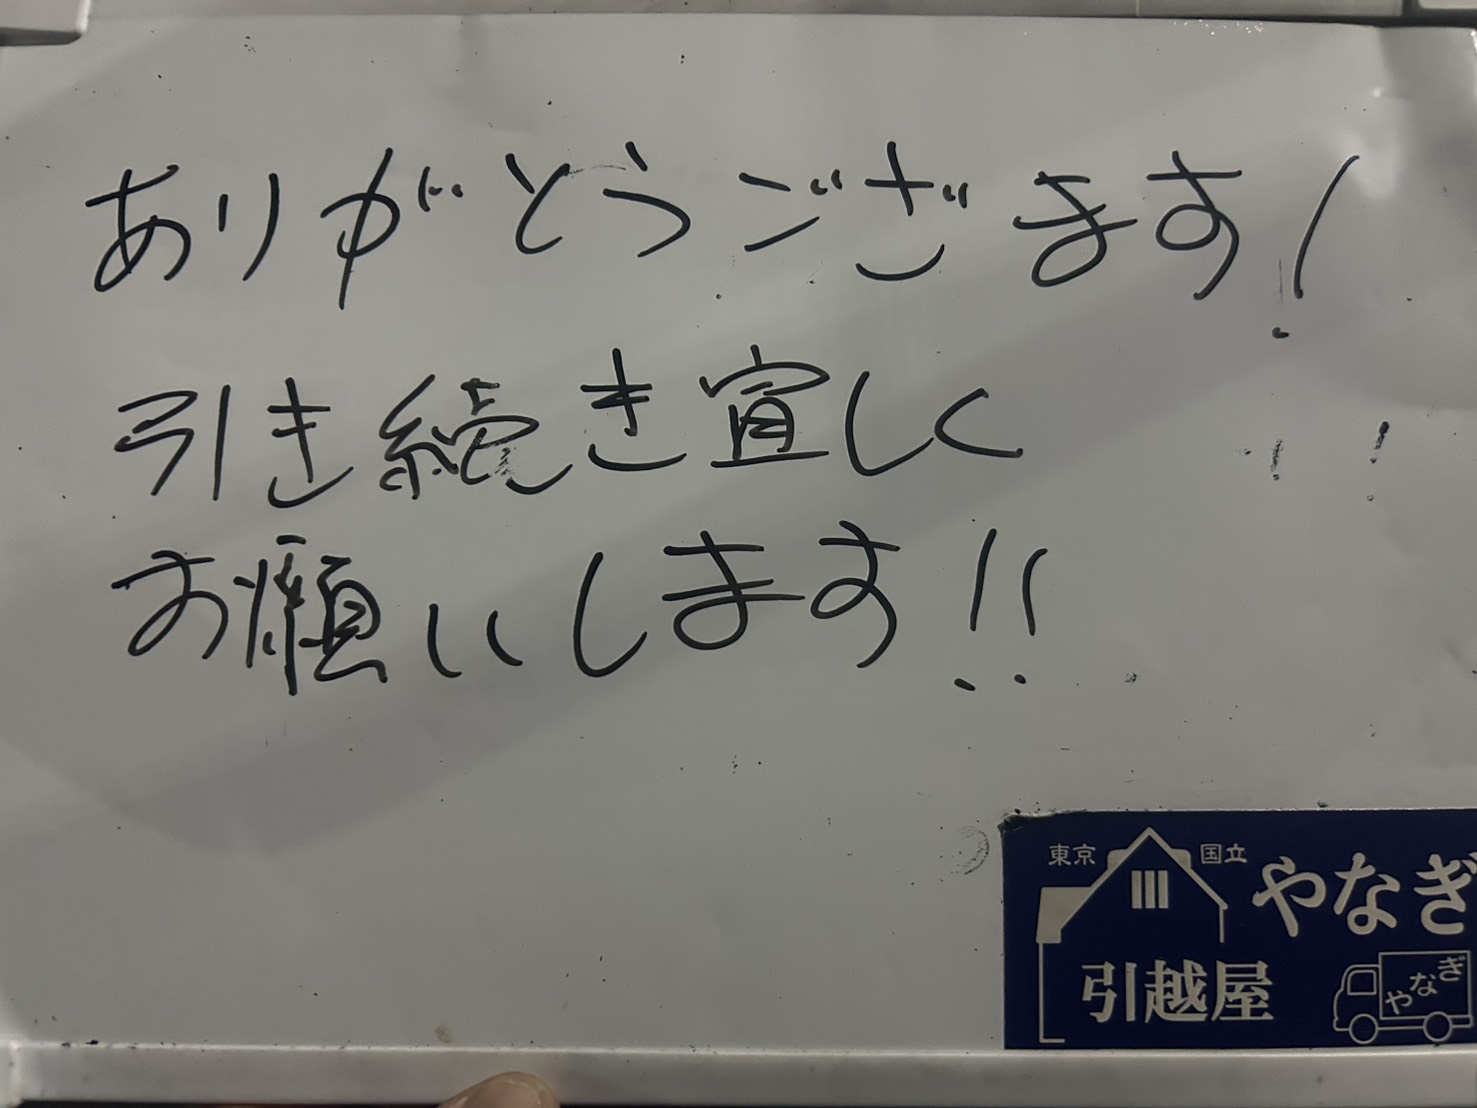 ありがとうございます!
引き続き宜しく
お願いします!!
東京 国立 やなぎ
引越屋
やなぎ